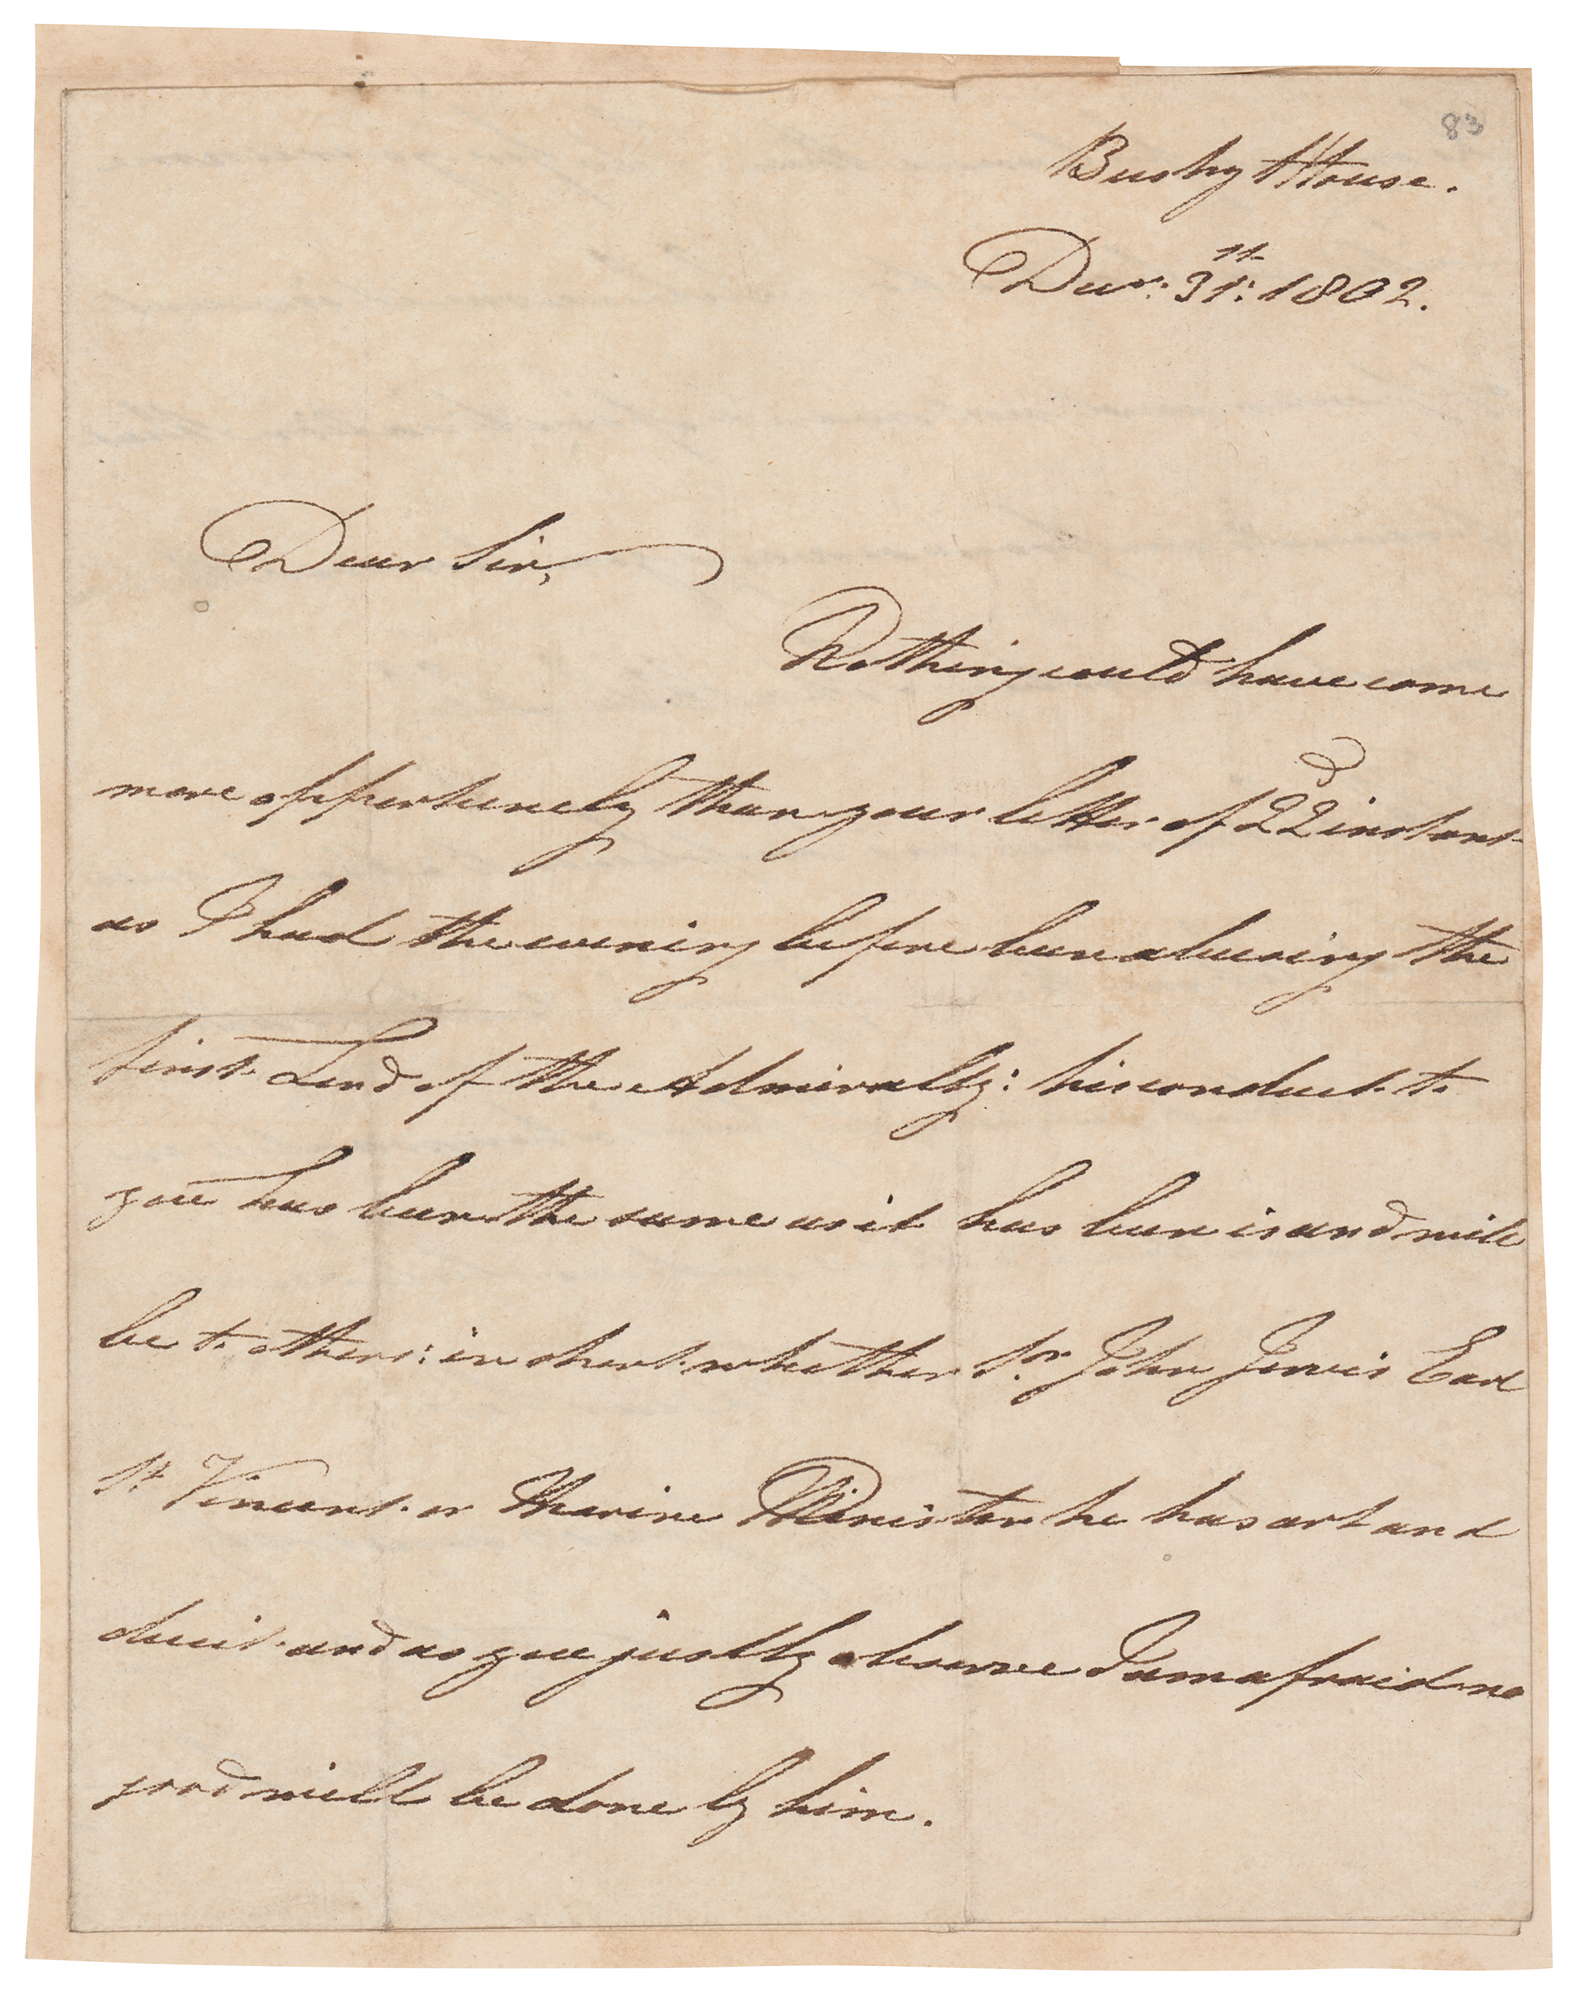 83
Bushy House.
Decr: 31st: 1802.
Dear Sir,
Nothing could have come
more opportunely than your letter of 22d instant
as I had the evening before been abusing the
first Lord of the Admiralty: his conduct to
you has been the same as it has been is and will
be to others: in short whether Sr. John Jervis Earl
St Vincent or Marine Minister he has art and
deceit and as you justly observe I am afraid no
good will be done by him.